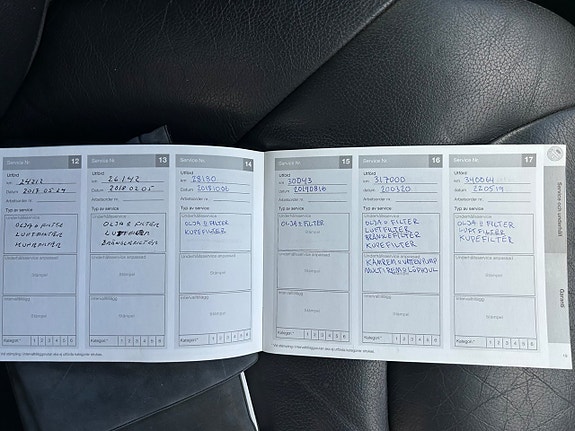 Service Nr. 12
Utförd
km 24212
Datum 2017 05 24
Arbetsorder nr
Typ av service
Underhållsservice
OLJA & FILTER
LUFTFILTER
KUPEFILTER
Underhållsservice anpassad
Stämpel
Intervalltillägg
Stämpel
Kategori* 1 2 3 4 5 6
Service Nr. 13
Utförd
km 26142
Datum 2018 02 05
Arbetsorder nr
Typ av service
Underhållsservice
OLJA & FILTER
LUFTFILTER
BRÄNSLEFILTER
Underhållsservice anpassad
Stämpel
Intervalltillägg
Stämpel
Kategori* 1 2 3 4 5 6
Service Nr. 14
Utförd
km 28130
Datum 20181006
Arbetsorder nr
Typ av service
Underhållsservice
OLJA & FILTER
KUPEFILTER
Underhållsservice anpassad
Stämpel
Intervalltillägg
Stämpel
Kategori* 1 2 3 4 5 6
Service Nr. 15
Utförd
km 30043
Datum 20190816
Arbetsorder nr
Typ av service
Underhållsservice
OLJA & FILTER
Stämpel
Underhållsservice anpassad
Stämpel
Intervalltillägg
Stämpel
Kategori* 1 2 3 4 5 6
Service Nr. 16
Utförd
km 317000
Datum 200320
Arbetsorder nr
Typ av service
Underhållsservice
OLJA & FILTER
LUFTFILTER
BRÄNSLEFILTER
KUPEFILTER
Underhållsservice anpassad
KAMREM & VATTENPUMP
MULTIREM & LÖPHJUL
Intervalltillägg
Stämpel
Kategori* 1 2 3 4 5 6
Service Nr. 17
Utförd
km 340064
Datum 220519
Arbetsorder nr
Typ av service
Underhållsservice
OLJA & FILTER
LUFTFILTER
KUPEFILTER
Underhållsservice anpassad
Stämpel
Intervalltillägg
Stämpel
Kategori* 1 2 3 4 5 6
Garanti